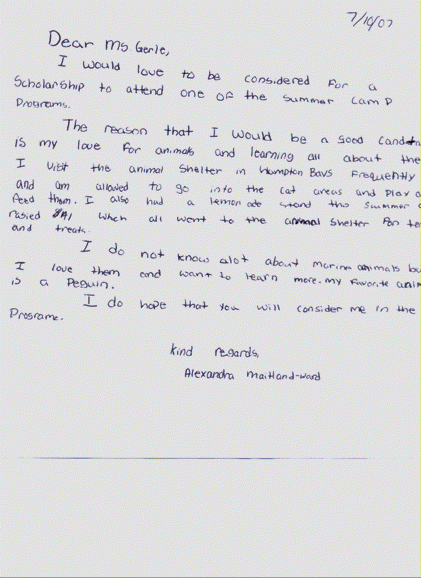 7/10/07
Dear Ms Gerle,
I would love to be considered for a
Scholarship to attend one of the summer camp
Programs.
The reason that I would be a good
is my love for animals and learning all about the
I visit the animal Shelter in Hampton Bays Frequently
and am allowed to go into the cat areas and Play
Feed them. I also had a lemonade stand this summer
rasied which all went to the animal shelter For
and treats.
I do not know alot about marine animals
I love them and want to learn more. my Favorite
is a Peguin.
I do hope that you will consider me in the
Programe.
kind regards,
Alexandra Maitland-ward